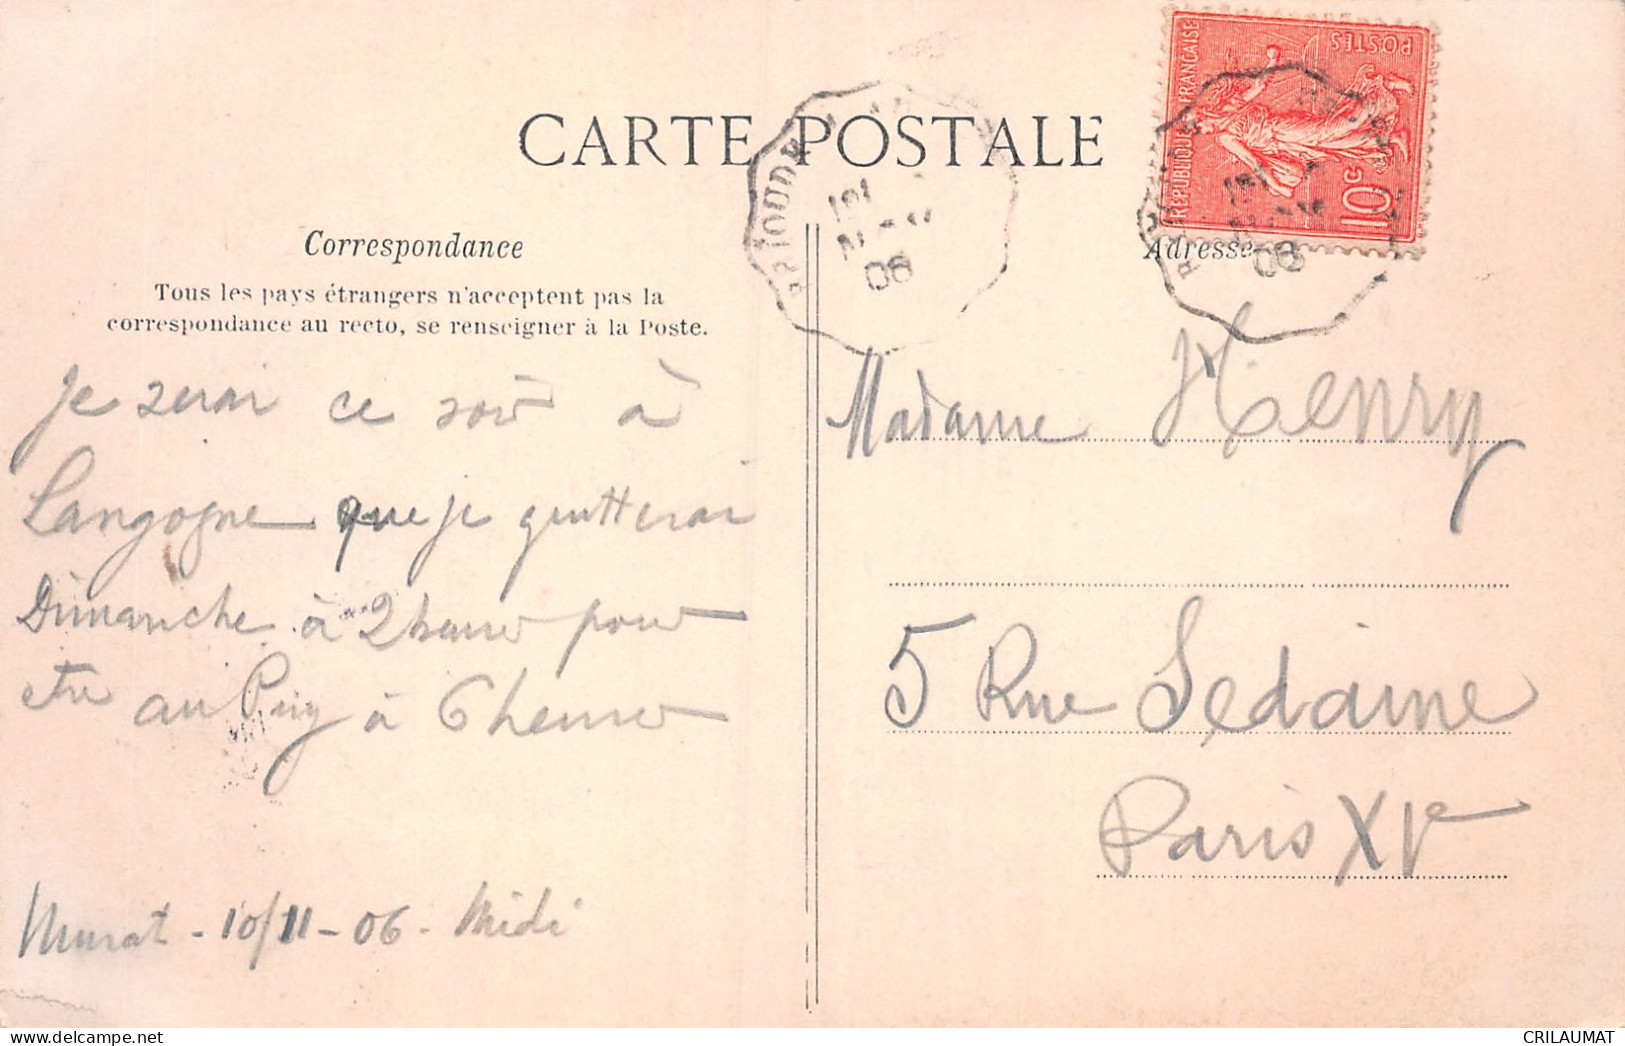 CARTE POSTALE
RÉPUBLIQUE FRANÇAISE
POSTES
10c
BRIOUDE
08
08
Correspondance
Tous les pays étrangers n'acceptent pas la
correspondance au recto, se renseigner à la Poste.
Je serai ce soir à
Langogne que je quitterai
Dimanche à 2 heures pour
etre au Puy à 6 heures
Murat - 10/11 - 06 - Midi
Adresse
Madame Henry
5 Rue Sedaine
Paris XIe
CRILAUMAT